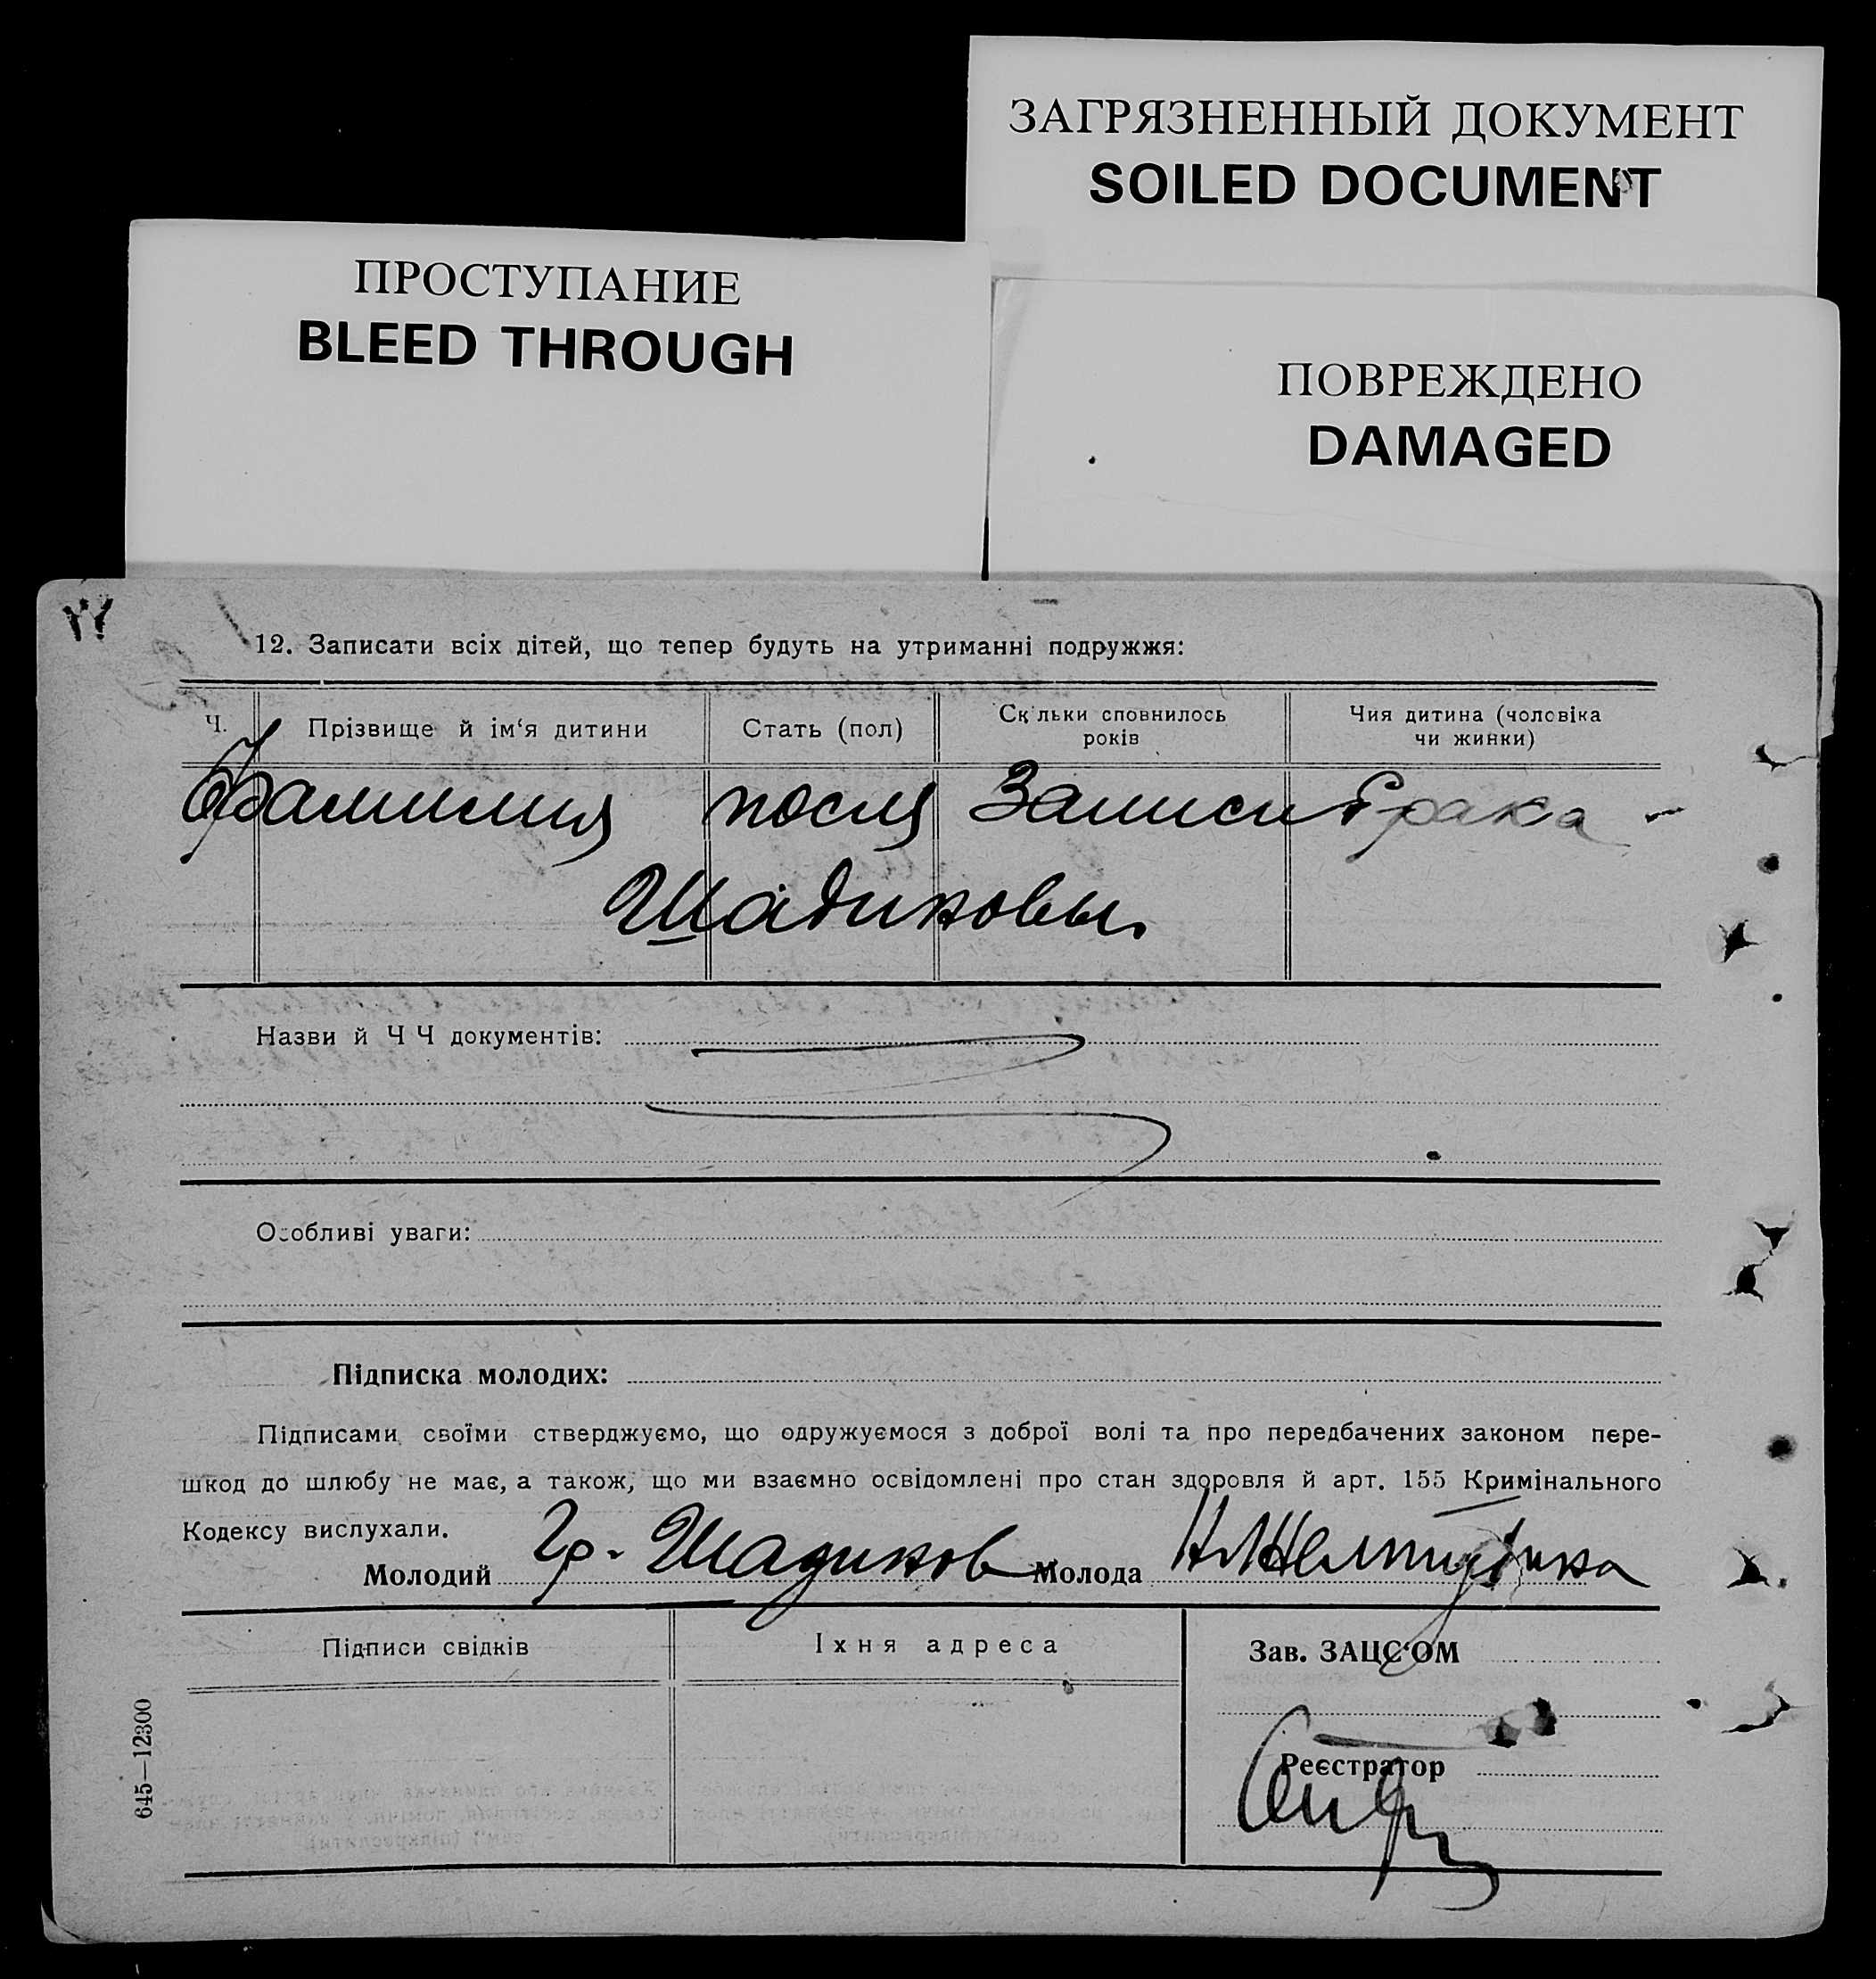 ЗАГРЯЗНЕННЫЙ ДОКУМЕНТ
SOILED DOCUMENT
ПРОСТУПАНИЕ
BLEED THROUGH
ПОВРЕЖДЕНО
DAMAGED
12. Записати всіх дітей, що тепер будуть на утриманні подружжя:
Ч. Прізвище й ім'я дитини Стать (пол) Скільки сповнилось років Чия дитина (чоловіка чи жинки)
Фамилия после записи брака -
Шадиковы.
Назви й Ч Ч документів:
Особливі уваги:
Підписка молодих:
Підписами своїми стверджуємо, що одружуємося з доброї волі та про передбачених законом пере-
шкод до шлюбу не має, а також, що ми взаємно освідомлені про стан здоровля й арт. 155 Кримінального
Кодексу вислухали.
Молодий Гр. Шадиков Молода
Підписи свідків Їхня адреса Зав. ЗАЦС'ОМ
Реєстратор
645—12300